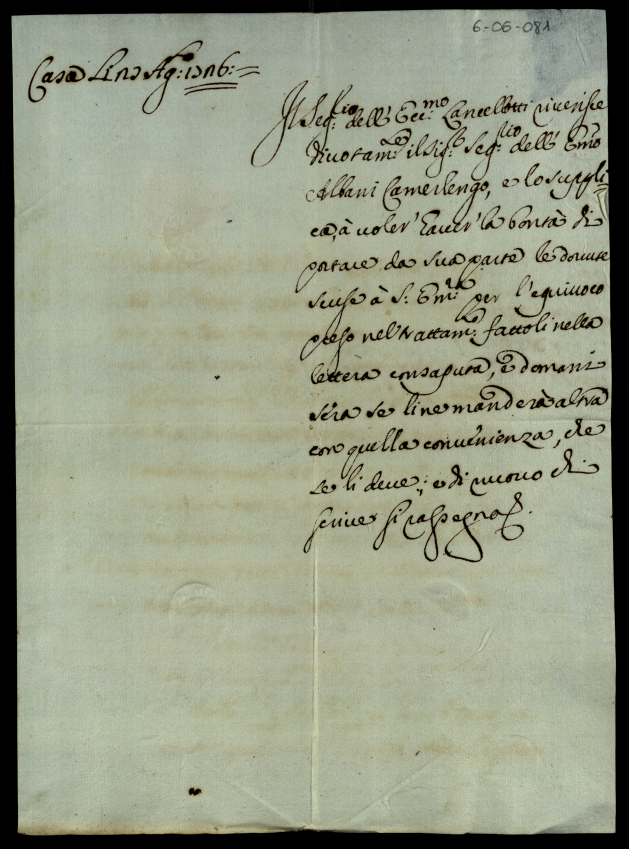 6-06-081
Casa Li 12 Ag:to 1726:
Il Seg:rio dell' Ecc:mo Lancellotti riverisce
divotam:te il Sig:r Seg:rio dell' Emo
Albani Camerlengo, e lo suppli-
ca, à voler' haver' la bontà di
portare da sua parte le dovute
scuse à S. Em:za per l'equivoco
preso nel trattam:to fattoli nella
lettera consaputa, e domani
sera se li ne manderà altra
con quella convenienza, che
se li deve; e di nuovo di
scriver si rassegna.